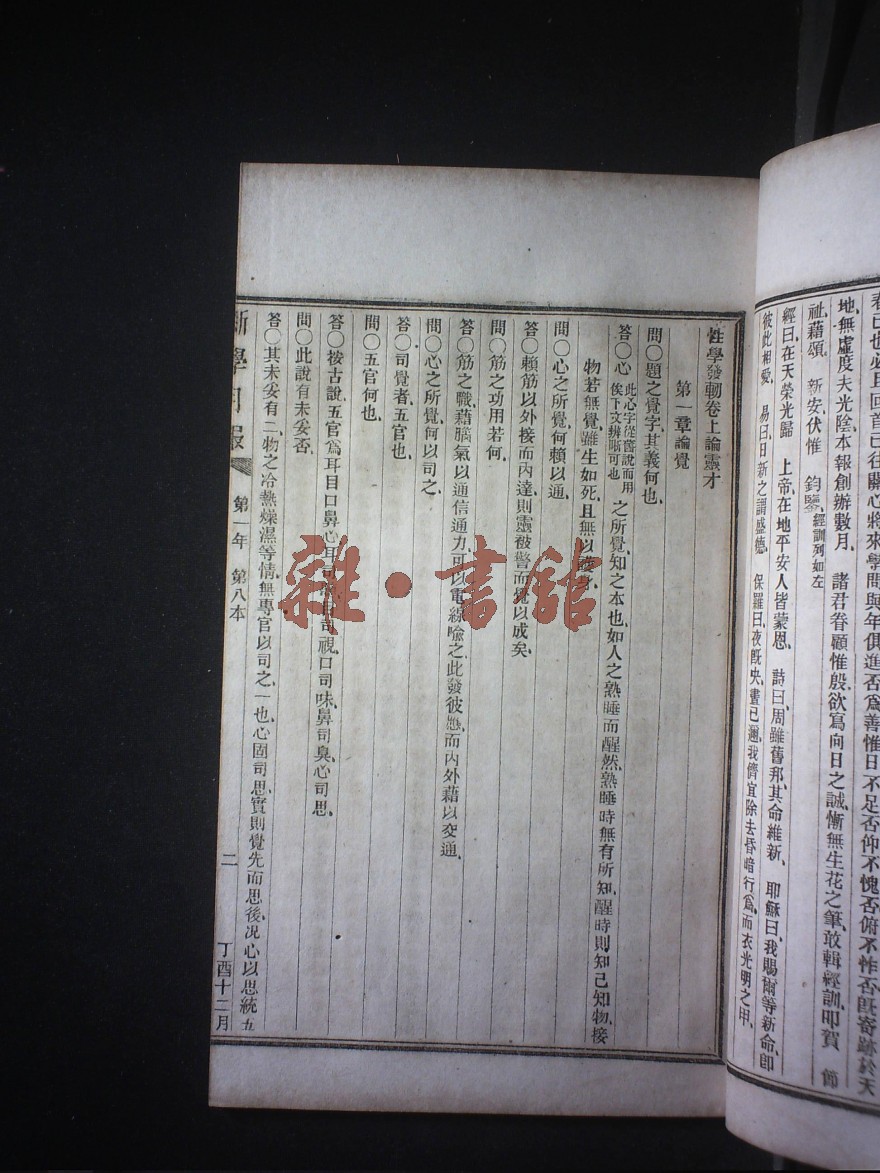 春已也必且回首已往關心將來學問與年俱進否爲善惟日不足否仰不愧否俯不怍否旣寄跡於天
地、無虛度夫光陰、本報創辦數月、諸君眷顧惟殷、欲寫向日之誠、慚無生花之筆、敢輯經訓、叩賀 節
祉、藉頌 新安、伏惟 鈞鑒、經訓列如左
經曰、在天榮光歸 上帝、在地平安人皆蒙恩、 詩曰、周雖舊邦、其命維新、 耶穌曰、我賜爾等新命、卽
彼此相愛、 易曰、日新之謂盛德、 保羅曰、夜旣央、晝已邇、我儕宜除去昏暗行爲、而衣光明之甲、
性學發軔卷上論靈才
第一章論覺
問〇題之覺字、其義何也、
答〇心此心字從舊說而用俟下文辨晰可也之所覺、知之本也、如人之熟睡而醒然、熟睡時無有所知、醒時則知己知物、接
物若無覺、雖生如死、且無以護身、
問〇心之所覺、何賴以通、
答〇賴筋以外接而內達、則靈被警而覺以成矣、
問〇筋之功用若何、
答〇筋之職、藉腦氣以通信通力、可以電線喩之、此發彼應、而內外藉以交通、
問〇心之所覺、何以司之、
答〇司覺者、五官也、
問〇五官何也、
答〇按古說、五官爲耳目口鼻心、耳司聽、目司視、口司味、鼻司臭、心司思、
問〇此說有未妥否、
答〇其未妥有二、物之冷熱燥濕等情、無專官以司之、一也、心固司思、實則覺先而思後、况心以思統五
新學月報 第一年 第八本 二 丁酉十二月
雜·書館